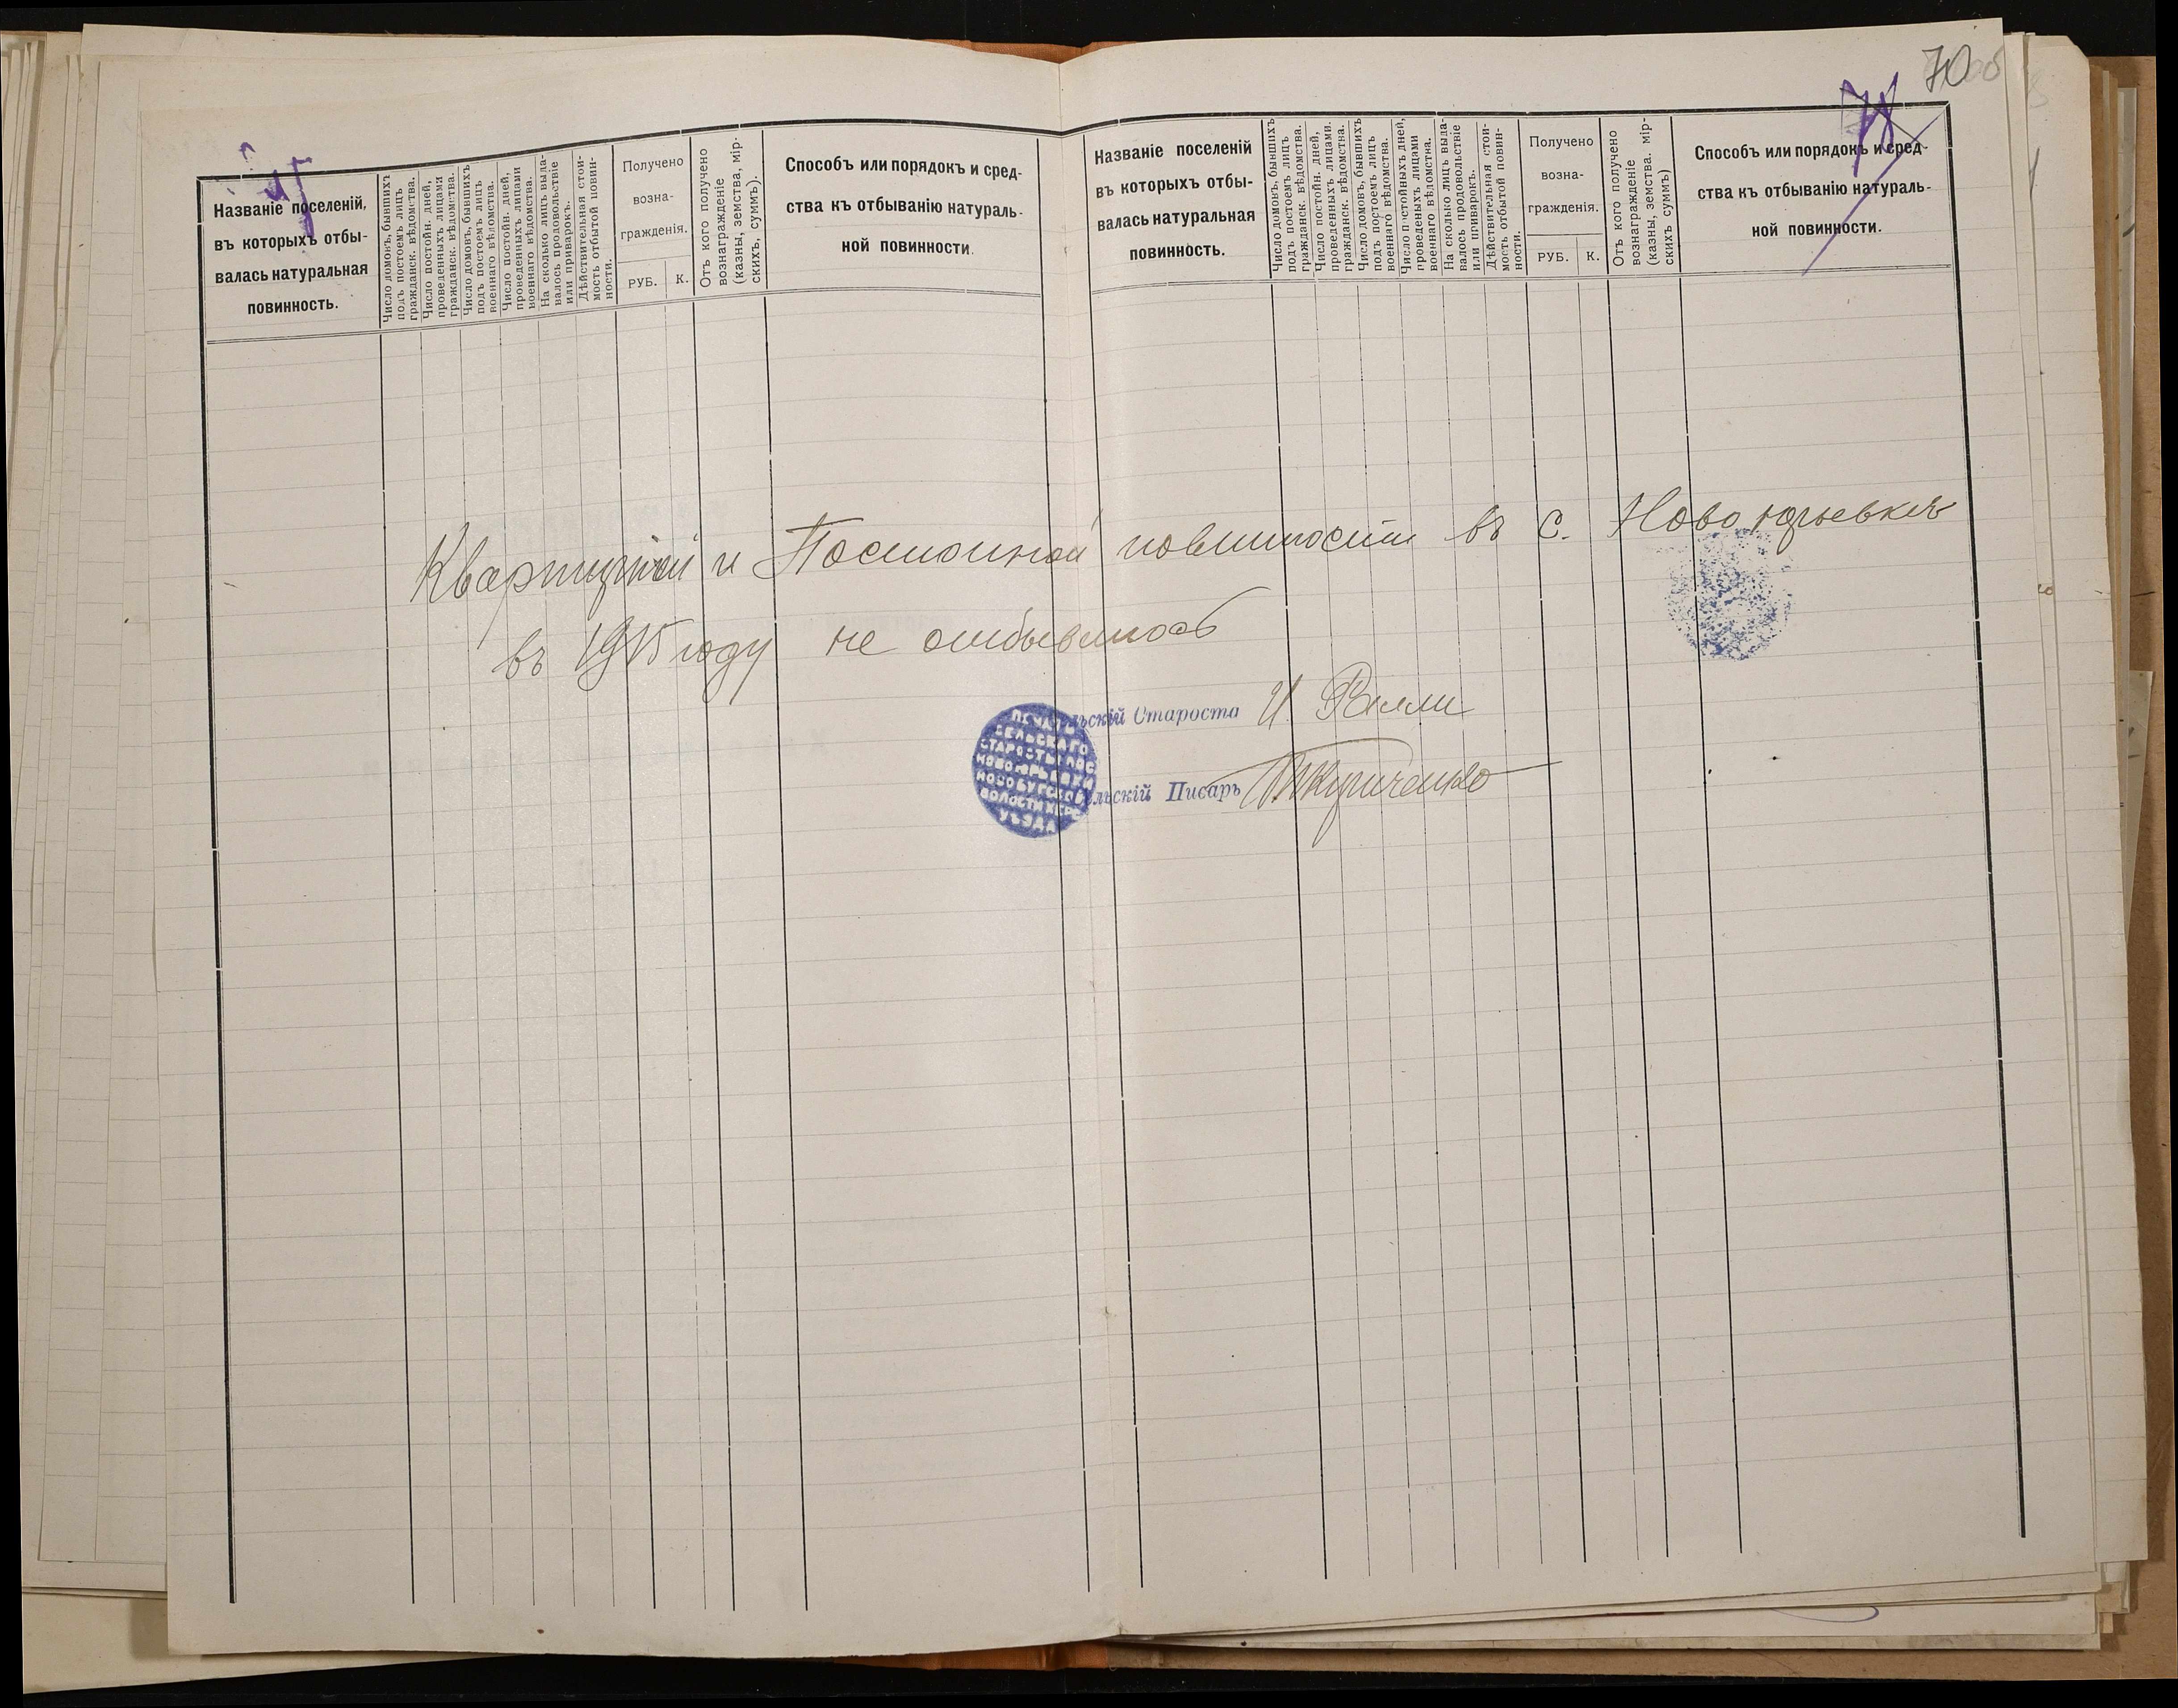 70
Названіе поселеній,
въ которыхъ отбы-
валась натуральная
повинность.
Число домовъ, бывшихъ
подъ постоемъ лицъ
гражданск. вѣдомства.
Число постойн. дней,
проведенныхъ лицами
гражданск. вѣдомства.
Число домовъ, бывшихъ
подъ постоемъ лицъ
военнаго вѣдомства.
Число постойн. дней,
проведенныхъ лицами
военнаго вѣдомства.
На сколько лицъ выда-
валось продовольствіе
или приварокъ.
Дѣйствительная стои-
мость отбытой повин-
ности.
Получено
возна-
гражденія.
РУБ. К.
Отъ кого получено
вознагражденіе
(казны, земства, мір-
скихъ, суммъ).
Способъ или порядокъ и сред-
ства къ отбыванію натураль-
ной повинности.
Названіе поселеній
въ которыхъ отбы-
валась натуральная
повинность.
Число домовъ, бывшихъ
подъ постоемъ лицъ
гражданск. вѣдомства.
Число постойн. дней,
проведенныхъ лицами.
гражданск. вѣдомства.
Число домовъ, бывшихъ
подъ постоемъ лицъ
военнаго вѣдомства.
Число постойныхъ дней,
проведеныхъ лицами
военнаго вѣдомства.
На сколько лицъ выда-
валось продовольствіе
или приварокъ.
Дѣйствительная стои-
мость отбытой повин-
ности.
Получено
возна-
гражденія.
РУБ. К.
Отъ кого получено
вознагражденіе
(казны, земства. мір-
скихъ суммъ)
Способъ или порядокъ и сред-
ства къ отбыванію натураль-
ной повинности.
Квартирной и Постойной повинности въ с. Ново Юрьевкѣ
въ 1915 году не отбывалось
Сельскій Староста И.
Сельскій Писарь
ПЕЧАТЬ
СЕЛЬСКАГО
СТАРОСТЫ ПОС
НОВОЮРЬЕВКИ
НОВОБУГСКОЙ
ВОЛОСТИ ХЕРС
УѢЗДА